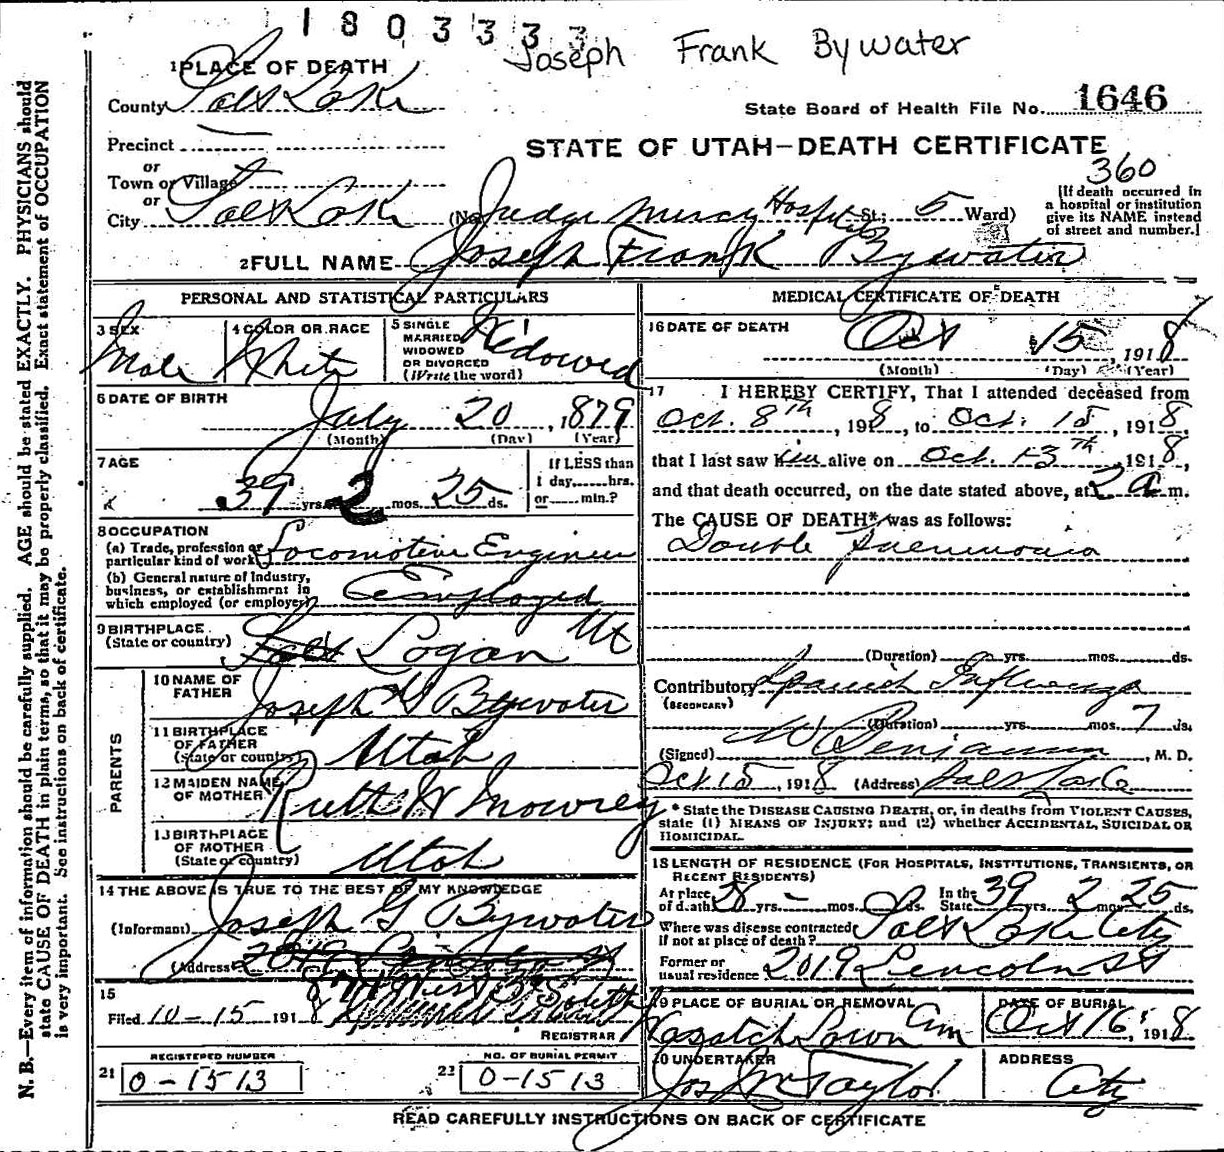 1803333
Joseph Frank Bywater
1 PLACE OF DEATH
County Salt Lake
State Board of Health File No. 1646
Precinct
or
Town or Village
or
City Salt Lake
STATE OF UTAH—DEATH CERTIFICATE
360
(No. Judge Mercy Hospital St.; 5 Ward)
[If death occurred in
a hospital or institution
give its NAME instead
of street and number.]
2 FULL NAME Joseph Frank Bywater
PERSONAL AND STATISTICAL PARTICULARS
3 SEX
Male
4 COLOR OR RACE
White
5 SINGLE
MARRIED
WIDOWED
OR DIVORCED
(Write the word)
Widowed
6 DATE OF BIRTH
July 20, 1879
(Month) (Day) (Year)
7 AGE
39 yrs. 2 mos. 25 ds.
If LESS than
1 day......hrs.
or ......min.?
8 OCCUPATION
(a) Trade, profession or
particular kind of work Locomotive Engineer
(b) General nature of Industry,
business, or establishment in
which employed (or employer) Employed
9 BIRTHPLACE
(State or country) Salt Logan Ut
PARENTS
10 NAME OF
FATHER Joseph G Bywater
11 BIRTHPLACE
OF FATHER
(State or country) Utah
12 MAIDEN NAME
OF MOTHER Ruth W Mowrey
13 BIRTHPLACE
OF MOTHER
(State or country) Utah
14 THE ABOVE IS TRUE TO THE BEST OF MY KNOWLEDGE
(Informant) Joseph G Bywater
(Address) 2019 Lincoln St
15
Filed 10-15 1918
REGISTRAR
REGISTERED NUMBER
21 0-1513
NO. OF BURIAL PERMIT
22 0-1513
MEDICAL CERTIFICATE OF DEATH
16 DATE OF DEATH
Oct 15, 1918
(Month) (Day) (Year)
17 I HEREBY CERTIFY, That I attended deceased from
Oct. 8th, 1918, to Oct. 15, 1918,
that I last saw him alive on Oct. 13th 1918,
and that death occurred, on the date stated above, at 2 a m.
The CAUSE OF DEATH* was as follows:
Double Pneumonia
(Duration) yrs. mos. ds.
Contributory Spanish Influenza
(SECONDARY)
(Duration) yrs. mos. 7 ds.
(Signed) W Benjamin, M. D.
Oct 15, 1918 (Address) Salt Lake
* State the DISEASE CAUSING DEATH, or, in deaths from VIOLENT CAUSES,
state (1) MEANS OF INJURY; and (2) whether ACCIDENTAL, SUICIDAL OR
HOMICIDAL.
18 LENGTH OF RESIDENCE (FOR HOSPITALS, INSTITUTIONS, TRANSIENTS, OR
RECENT RESIDENTS)
At place
of death 28 yrs. - mos. ds.
In the
State 39 2 25 ds.
Where was disease contracted
if not at place of death? Salt Lake City
Former or
usual residence 2019 Lincoln St
19 PLACE OF BURIAL OR REMOVAL
Wasatch Lawn Cem
DATE OF BURIAL
Oct 16, 1918
20 UNDERTAKER
Jos Wm Taylor
ADDRESS
City
READ CAREFULLY INSTRUCTIONS ON BACK OF CERTIFICATE
N. B.—Every item of information should be carefully supplied. AGE should be stated EXACTLY. PHYSICIANS should
state CAUSE OF DEATH in plain terms, so that it may be properly classified. Exact statement of OCCUPATION
is very important. See instructions on back of certificate.